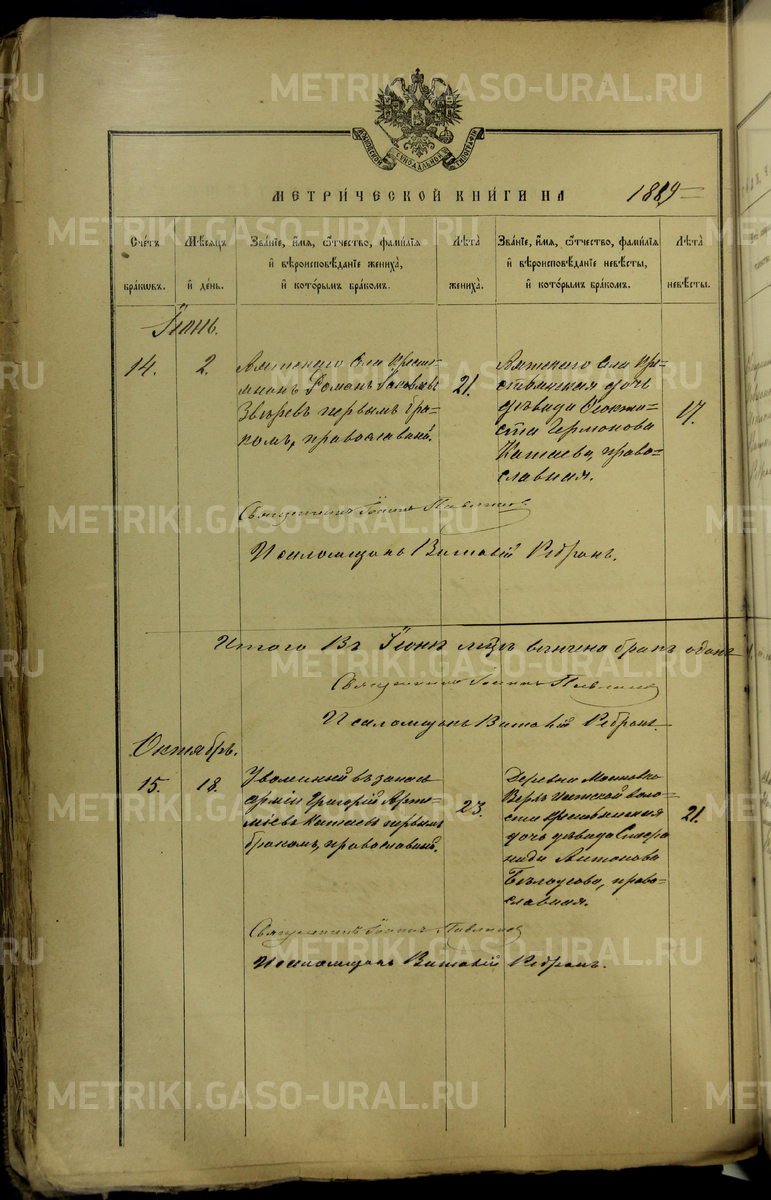 МЕТРИ́ЧЕСКОЙ КНИ́ГИ НА 1889
Сче́тъ
бра́ковъ.
Мѣ́сяцъ
и҆ де́нь.
Зва́нїе, и҆́мя, ѻ҆́тчество, фами́лїя
и҆ вѣроисповѣ́данїе жениха̀,
и҆ кото́рымъ бра́комъ.
Лѣ́та
жениха̀.
Зва́нїе, и҆́мя, ѻ҆́тчество, фами́лїя
и҆ вѣроисповѣ́данїе невѣ́сты,
и҆ кото́рымъ бра́комъ.
Лѣ́та
невѣ́сты.
Іюнь.
14.
2.
Аятскаго Села крестья=
нинъ Романъ Іаковлевъ
Звѣревъ первымъ бра=
комъ, православный.
21.
Аятскаго Села кре=
стьянская дочь
дѣвица Ѳеокти=
ста Германова
Катаева, право=
славная.
17.
Священникъ Іоаннъ
Псаломщикъ Виталій
Итого въ Іюнѣ м҃цѣ вѣнчано бракъ одинъ 1.
Священникъ Іоаннъ
Псаломщикъ Виталій
Октябрь.
15.
18.
Уволенный въ запасъ
арміи Григорій Арте=
мьевъ Катаевъ первымъ
бракомъ, православный.
23.
Деревни
воло=
сти крестьянская
дочь дѣвица
Антонова
Бѣлоусова, право=
славная.
21.
Священникъ Іоаннъ
Псаломщикъ Виталій
METRIKI.GASO-URAL.RU